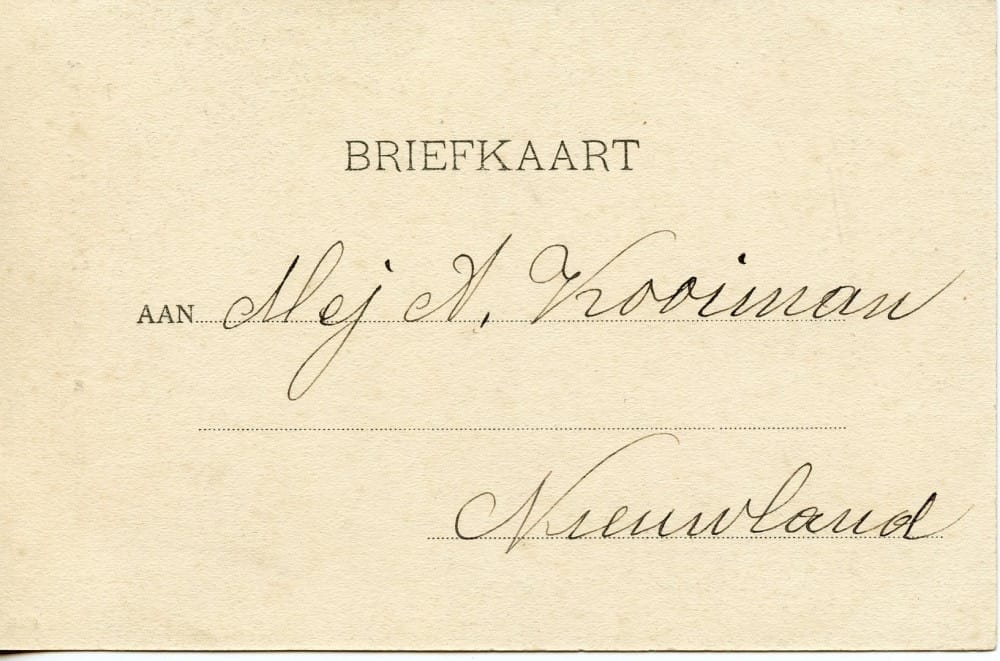 BRIEFKAART
AAN Mej A. Kooiman
Nieuwland